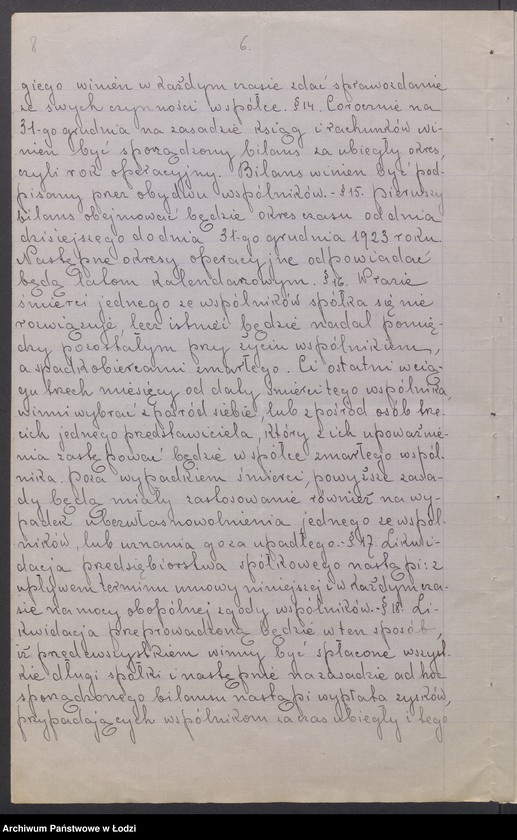 8
6.
giego winien w każdym czasie zdać sprawozdanie
ze swych czynności w spółce. § 14. Corocznie na
31-go grudnia na zasadzie ksiąg i rachunków wi-
nien być sporządzony bilans za ubiegły okres,
czyli rok operacyjny. Bilans winien być pod-
pisany przez obydwu wspólników. - § 15. Pierwszy
bilans obejmować będzie okres czasu od dnia
dzisiejszego do dnia 31-go grudnia 1923 roku.
Następne okresy operacyjne odpowiadać
będą latom kalendarzowym. § 16. W razie
śmierci jednego ze wspólników spółka się nie
rozwiązuje, lecz istnieć będzie nadal pomię-
dzy pozostałym przy życiu wspólnikiem,
a spadkobiercami zmarłego. Ci ostatni w cią-
gu trzech miesięcy od daty śmierci tego wspólnika,
winni wybrać z pośród siebie, lub z pośród osób trze-
cich jednego przedstawiciela, który z ich upoważnie-
nia zastępować będzie w spółce zmarłego wspól-
nika. Poza wypadkiem śmierci, powyższe zasa-
dy będą miały zastosowanie również na wy-
padek ubezwłasnowolnienia jednego ze wspól-
ników, lub uznania go za upadłego. - § 17. Likwi-
dacja przedsiębiorstwa spółkowego nastąpi: z
upływem terminu umowy niniejszej i w każdym cza-
sie na mocy obopólnej zgody wspólników. - § 18. Li-
kwidacja przeprowadzona będzie w ten sposób,
iż przedewszystkiem winny być spłacone wszyst-
kie długi spółki i następnie na zasadzie ad hoc
sporządzonego bilansu nastąpi wypłata zysków,
przypadających wspólnikom za czas ubiegły i tego
Archiwum Państwowe w Łodzi